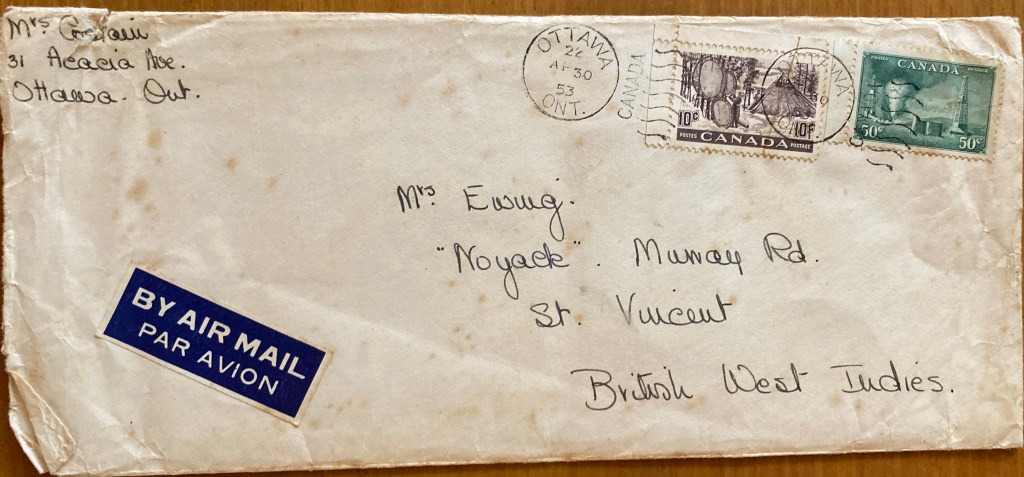 Mrs
31 Acacia Ave.
Ottawa. Ont.
OTTAWA
22
AP 30
53
ONT.
CANADA
10¢ 10¢
POSTES CANADA POSTAGE
POSTES CANADA POSTAGE
50¢ 50¢
Mrs Ewing.
"Noyack". Murray Rd.
St. Vincent
British West Indies.
BY AIR MAIL
PAR AVION